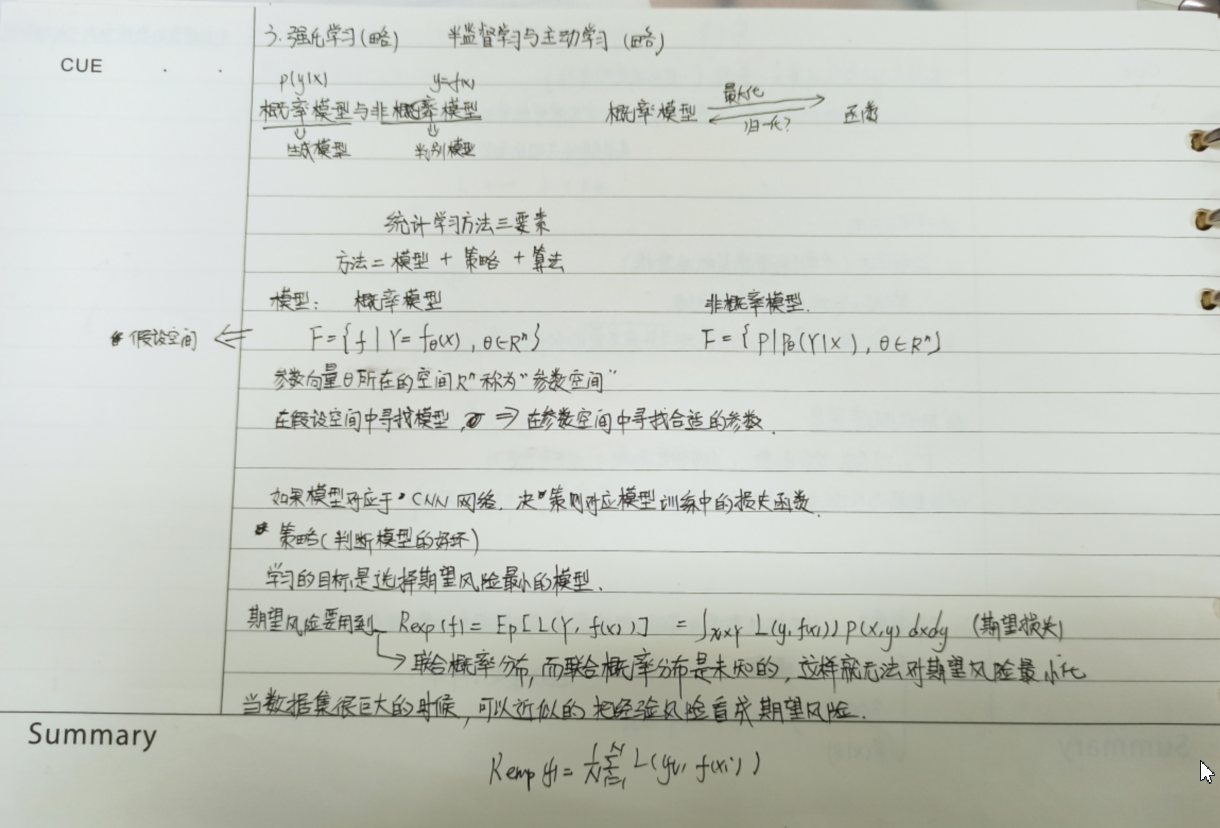 3. 强化学习(略) 半监督学习与主动学习 (略)
CUE
P(y|x) y=f(x)
概率模型与非概率模型 概率模型 最大化 函数
归一化?
生成模型 判别模型
统计学习方法三要素
方法 = 模型 + 策略 + 算法
模型: 概率模型 非概率模型.
* 假设空间 ⇐ F={f|Y=fθ(x), θ∈Rⁿ} F={P|Pθ(Y|X), θ∈Rⁿ}
参数向量θ所在的空间Rⁿ称为"参数空间"
在假设空间中寻找模型, ⇒ 在参数空间中寻找合适的参数.
如果模型对应于CNN网络. 决策则对应模型训练中的损失函数.
* 策略(判断模型的好坏)
学习的目标是选择期望风险最小的模型.
期望风险要用到 Rexp(f) = Ep[L(Y, f(x))] = ∫x×y L(y, f(x)) P(x,y) dxdy (期望损失)
→ 联合概率分布, 而联合概率分布是未知的, 这样就无法对期望风险最小化
当数据集很巨大的时候, 可以近似的把经验风险看成期望风险.
Summary
Remp(f) = 1/N ∑ᵢ₌₁ᴺ L(yᵢ, f(xᵢ))